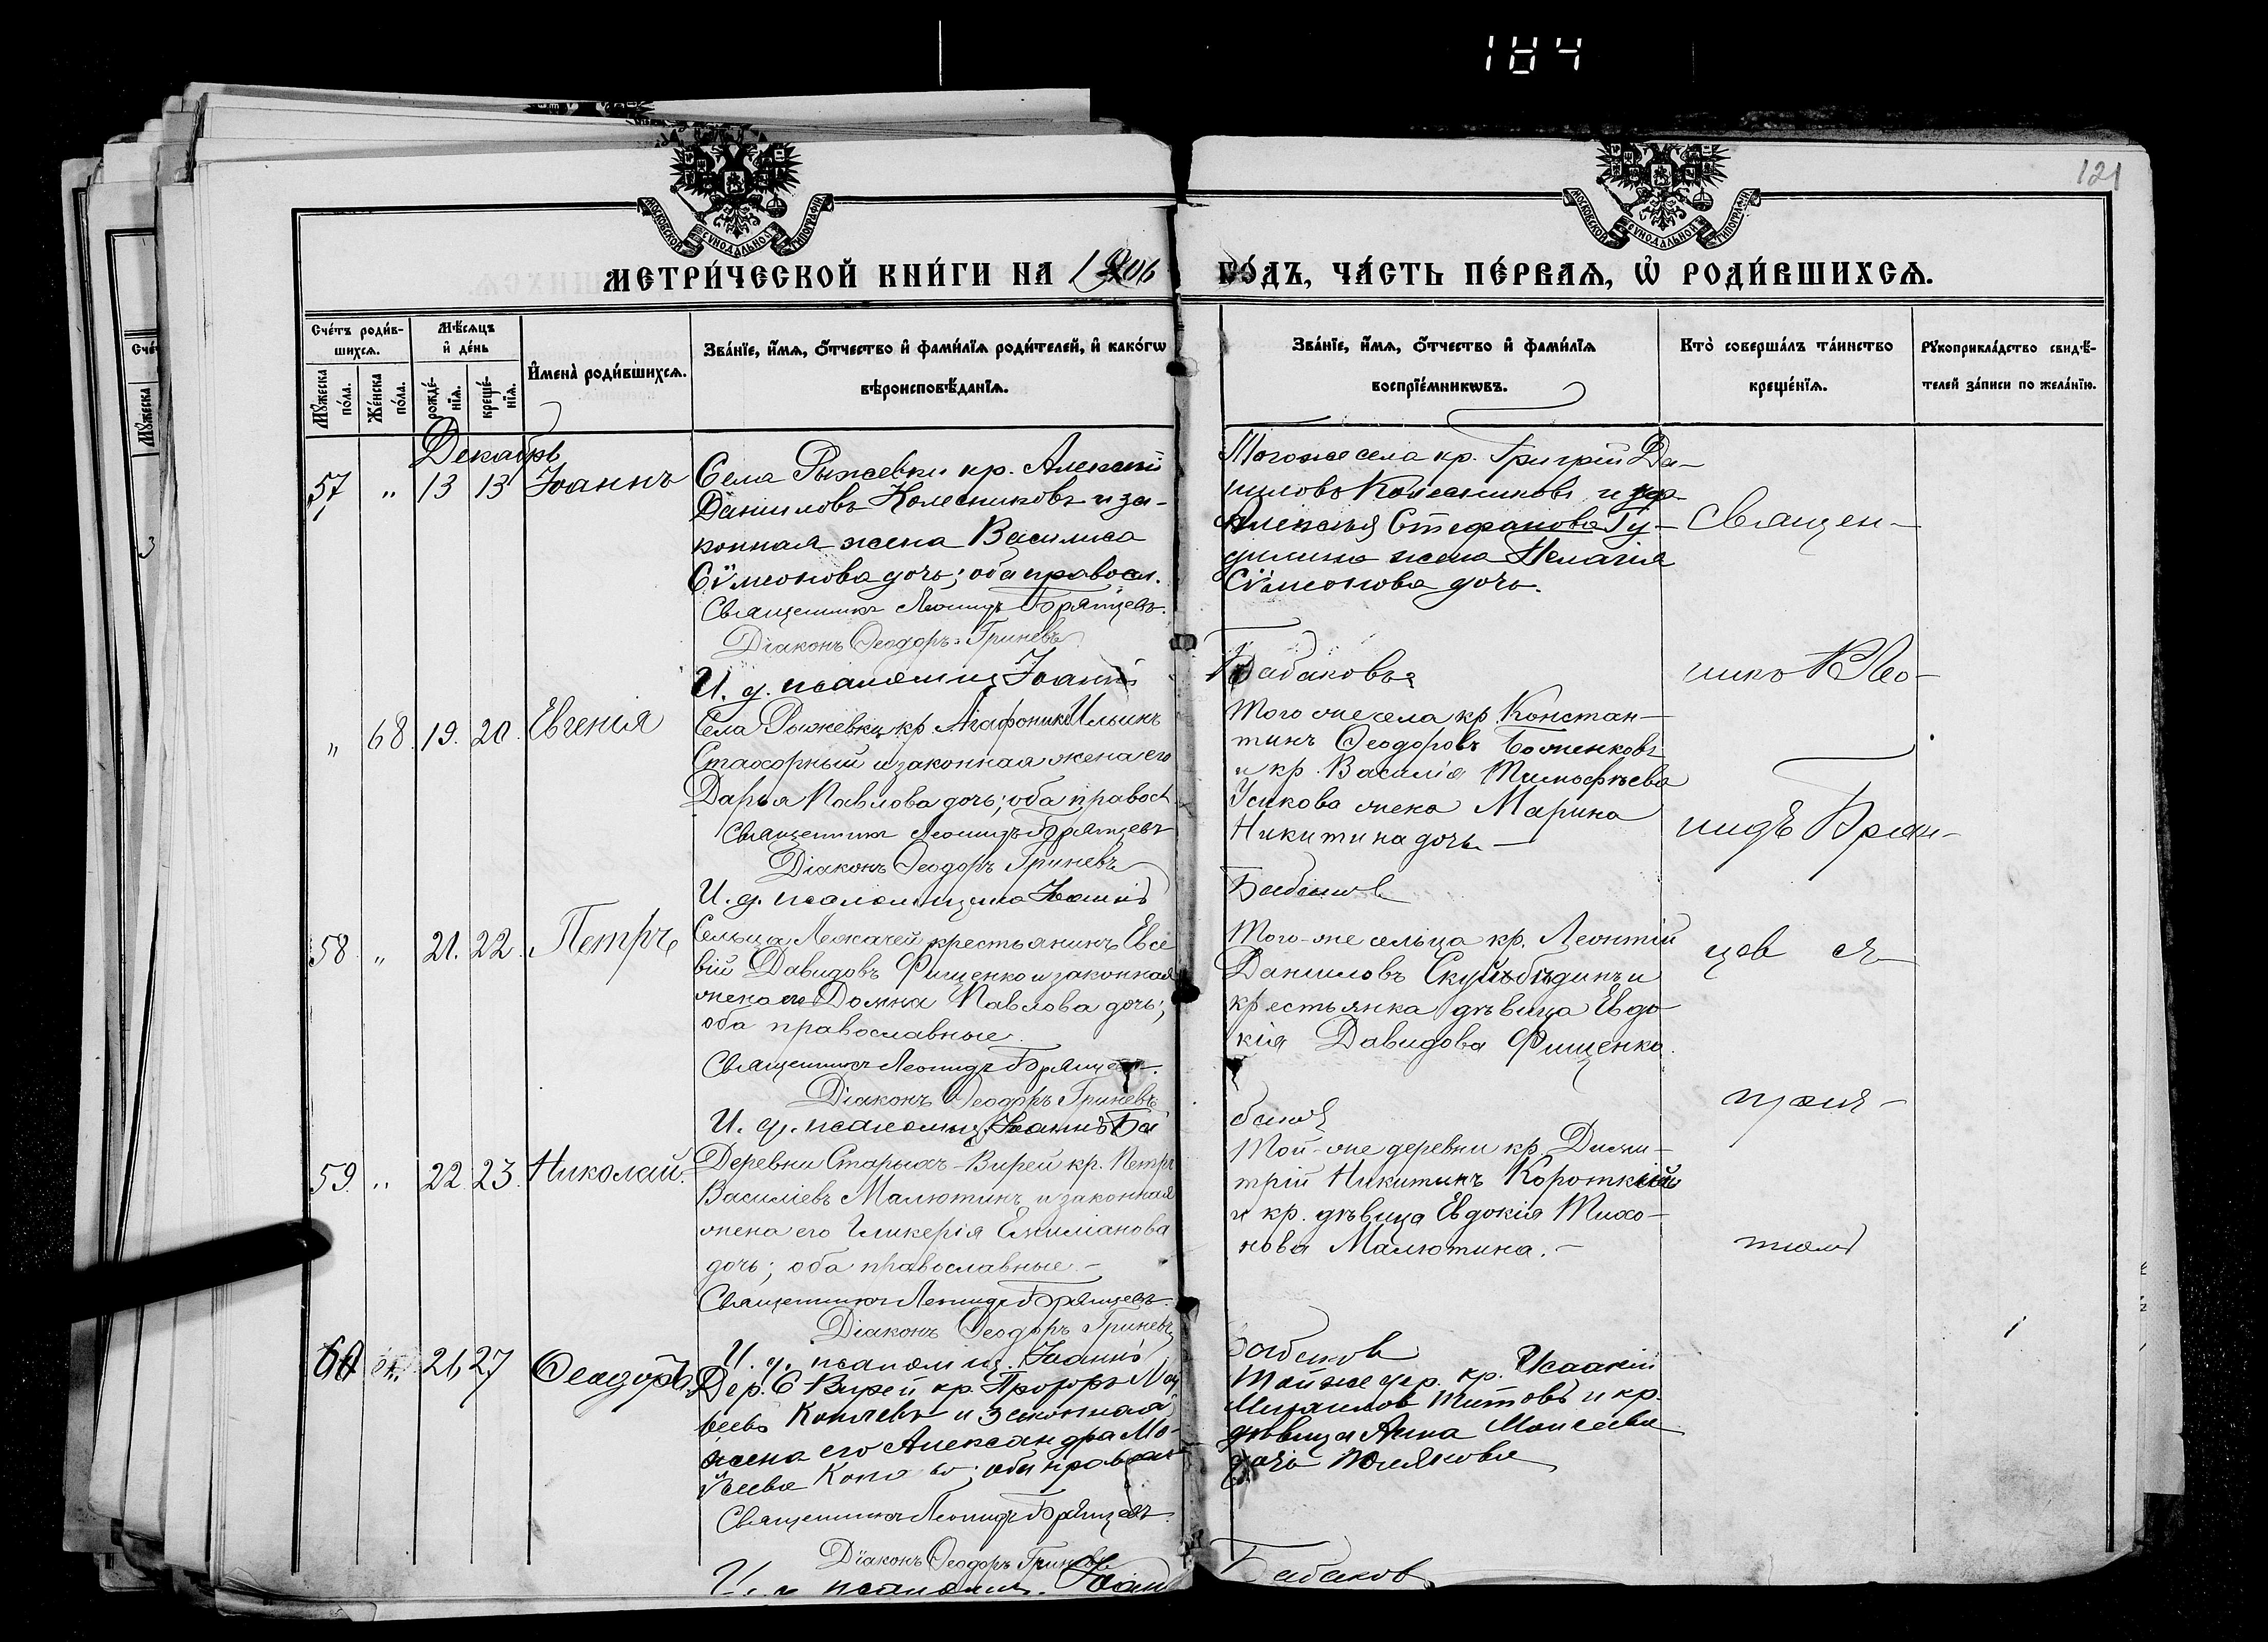 184
121
МОСКОВСКОЙ СѴНОДАЛЬНОЙ ТИПОГРАФІИ
МОСКОВСКОЙ СѴНОДАЛЬНОЙ ТИПОГРАФІИ
МЕТРИ́ЧЕСКОЙ КНИ́ГИ НА 1906
ГО́ДЪ, ЧА́СТЬ ПЕ́РВАЯ, Ѿ РОДИ́ВШИХСЯ.
Сче́тъ роди́в-
шихся.
Мѣ́сяцъ
и҆ де́нь
Мꙋ́жеска
по́ла.
Же́нска
по́ла.
рожде́-
нїѧ.
креще́-
нїѧ.
И҆мена̀ роди́вшихся.
Зва́нїе, и҆́мѧ, ѻ҆́тчество и҆ фами́лїѧ роди́телей, и҆ како́гѡ
вѣроисповѣ́данїѧ.
Зва́нїе, и҆́мѧ, ѻ҆́тчество и҆ фами́лїѧ
воспрїе́мникѡвъ.
Кто̀ соверша́лъ та́инство
креще́нїѧ.
Рꙋкоприкла́дство свидѣ́-
телей за́писи по жела́нїю.
Декабрь
57 " 13 13 Іоаннъ
Села Рыжевки кр. Алексій
Даниловъ Колесниковъ и за-
конная жена Василиса
Сѵмеонова дочь; оба правосл.
Священникъ Леонидъ Брянцевъ.
Діаконъ Ѳеодоръ Гриневъ
И. д. псаломщ. Іоаннъ
Тогоже села кр. Григорій Да-
ниловъ Колесниковъ и кр.
Алексѣя Стефанова Гу-
жена Пелагія
Сѵмеонова дочь.
Бабаковъ
" 68. 19. 20. Евгенія
Села Рыжевки кр. Агафоникъ Ильинъ
и законная жена его
Дарья Павлова дочь; оба правосл
Священникъ Леонидъ Брянцевъ
Діаконъ Ѳеодоръ Гриневъ
И. д. псаломщика Іоаннъ
Того же села кр. Констан-
тинъ Ѳеодоровъ Боженковъ
и кр. Василія Тимофѣева
Усикова жена Марина
Никитина дочь. —
Бабаков
58 " 21. 22. Петръ
Сельца Лежачей крестьянинъ Евсе
вій Давидовъ Фищенко и законная
жена его Домна Павлова дочь;
оба православные.
Священникъ Леонидъ Брянцевъ.
Діаконъ Ѳеодоръ Гриневъ
И. д. псаломщ. Іоаннъ Ба
Того-же сельца кр. Леонтій
Даниловъ Скуйбѣдинъ и
крестьянка дѣвица Евдо-
кія Давидова Фищенко.
баков
59. " 22. 23. Николай.
Деревни Старыхъ-Вирей кр. Петръ
Василіевъ Малютинъ и законная
жена его Гликерія Емиліанова
дочь; оба православные. —
Священникъ Леонидъ Брянцевъ.
Діаконъ Ѳеодоръ Гриневъ
И. д. псаломщ. Іоаннъ
Той-же деревни кр. Дими-
трій Никитинъ Короткій
и кр. дѣвица Евдокія Тихо-
нова Малютина. —
Бабаков
60 26 27 Ѳеодоръ
Дер. С Вирей кр. Прохоръ Мо
сеевъ и законная
жена его Александра Мо-
оба правосл
Священникъ Леонидъ Брянцевъ.
Діаконъ Ѳеодоръ Гриневъ.
И. д. псаломщ. Іоан
Тойже дер. кр. Исаакій
Михаилов Титовъ и кр.
дѣвица Анна Моисеева
дочь
Бабаков
Священ-
никъ Лео-
нидъ Брян-
цев